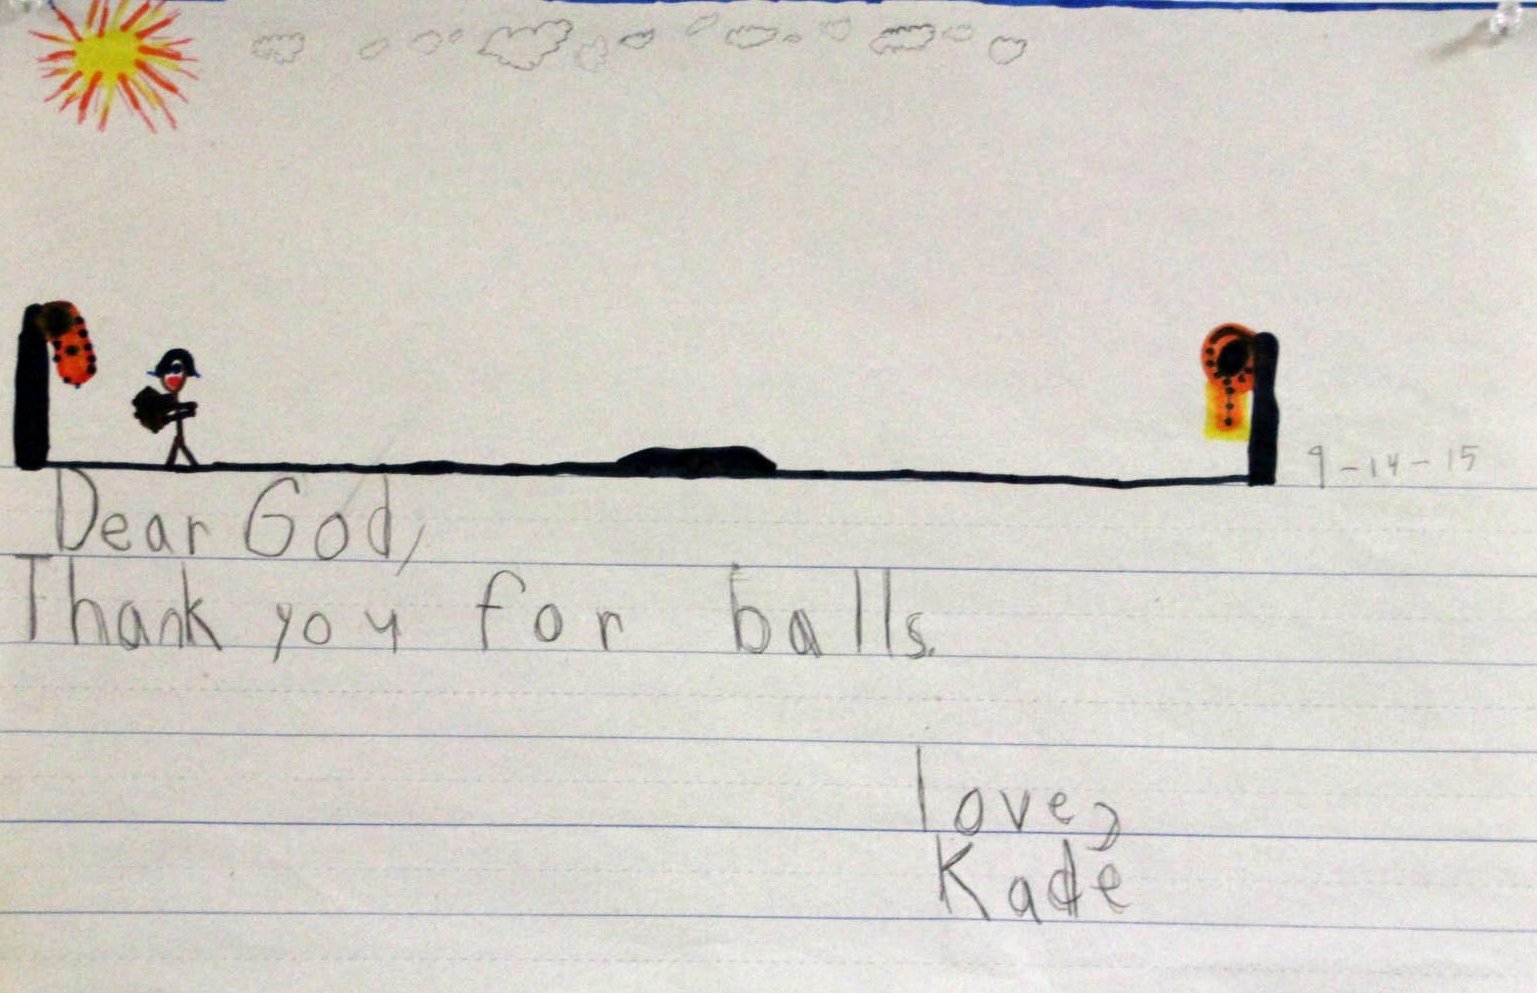 9-14-15
Dear God,
Thank you for balls.
love,
Kade